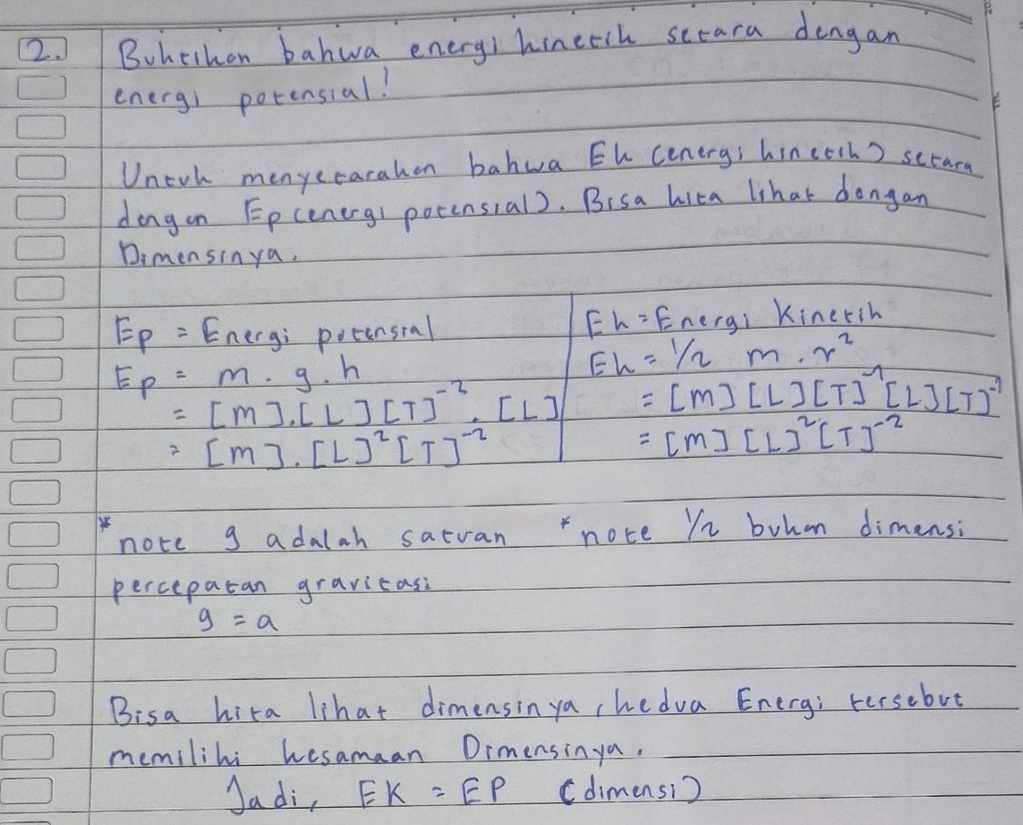 2. Buktikan bahwa energi kinetik setara dengan
energi potensial!
Untuk menyetarakan bahwa Ek (energi kinetik) setara
dengan Ep (energi potensial). Bisa kita lihat dengan
Dimensinya.
Ep = Energi potensial
Ep = m . g . h
= [M].[L][T]⁻². [L]
= [M].[L]²[T]⁻²
Ek = Energi Kinetik
Ek = 1/2 m . v²
= [M][L][T]⁻¹[L][T]⁻¹
= [M][L]²[T]⁻²
*note g adalah satuan
percepatan gravitasi
g = a
*note 1/2 bukan dimensi
Bisa kita lihat dimensinya, kedua Energi tersebut
memiliki kesamaan Dimensinya.
Jadi, EK = EP (dimensi)